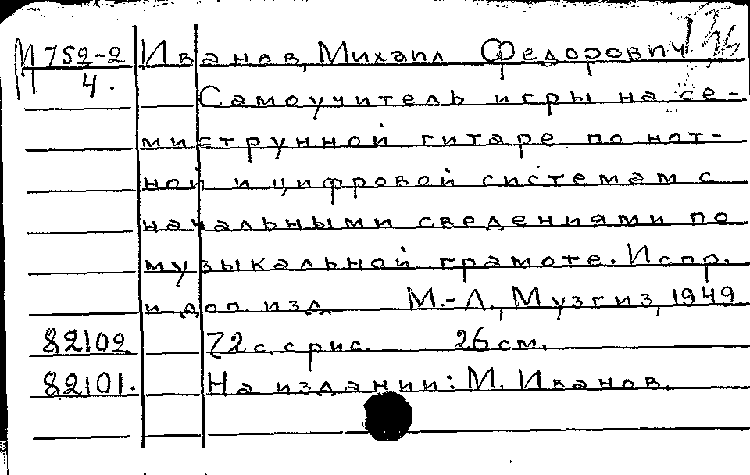 М 752-2 Иванов, Михаил Федорович
4.
Самоучитель игры на се-
миструнной гитаре по нот-
ной и цифровой системам с
начальными сведениями по
музыкальной грамоте. Испр.
и доп. изд. М.-Л., Музгиз, 1949
82102 72 с. с рис. 26 см.
82101. На издании: М. Иванов.